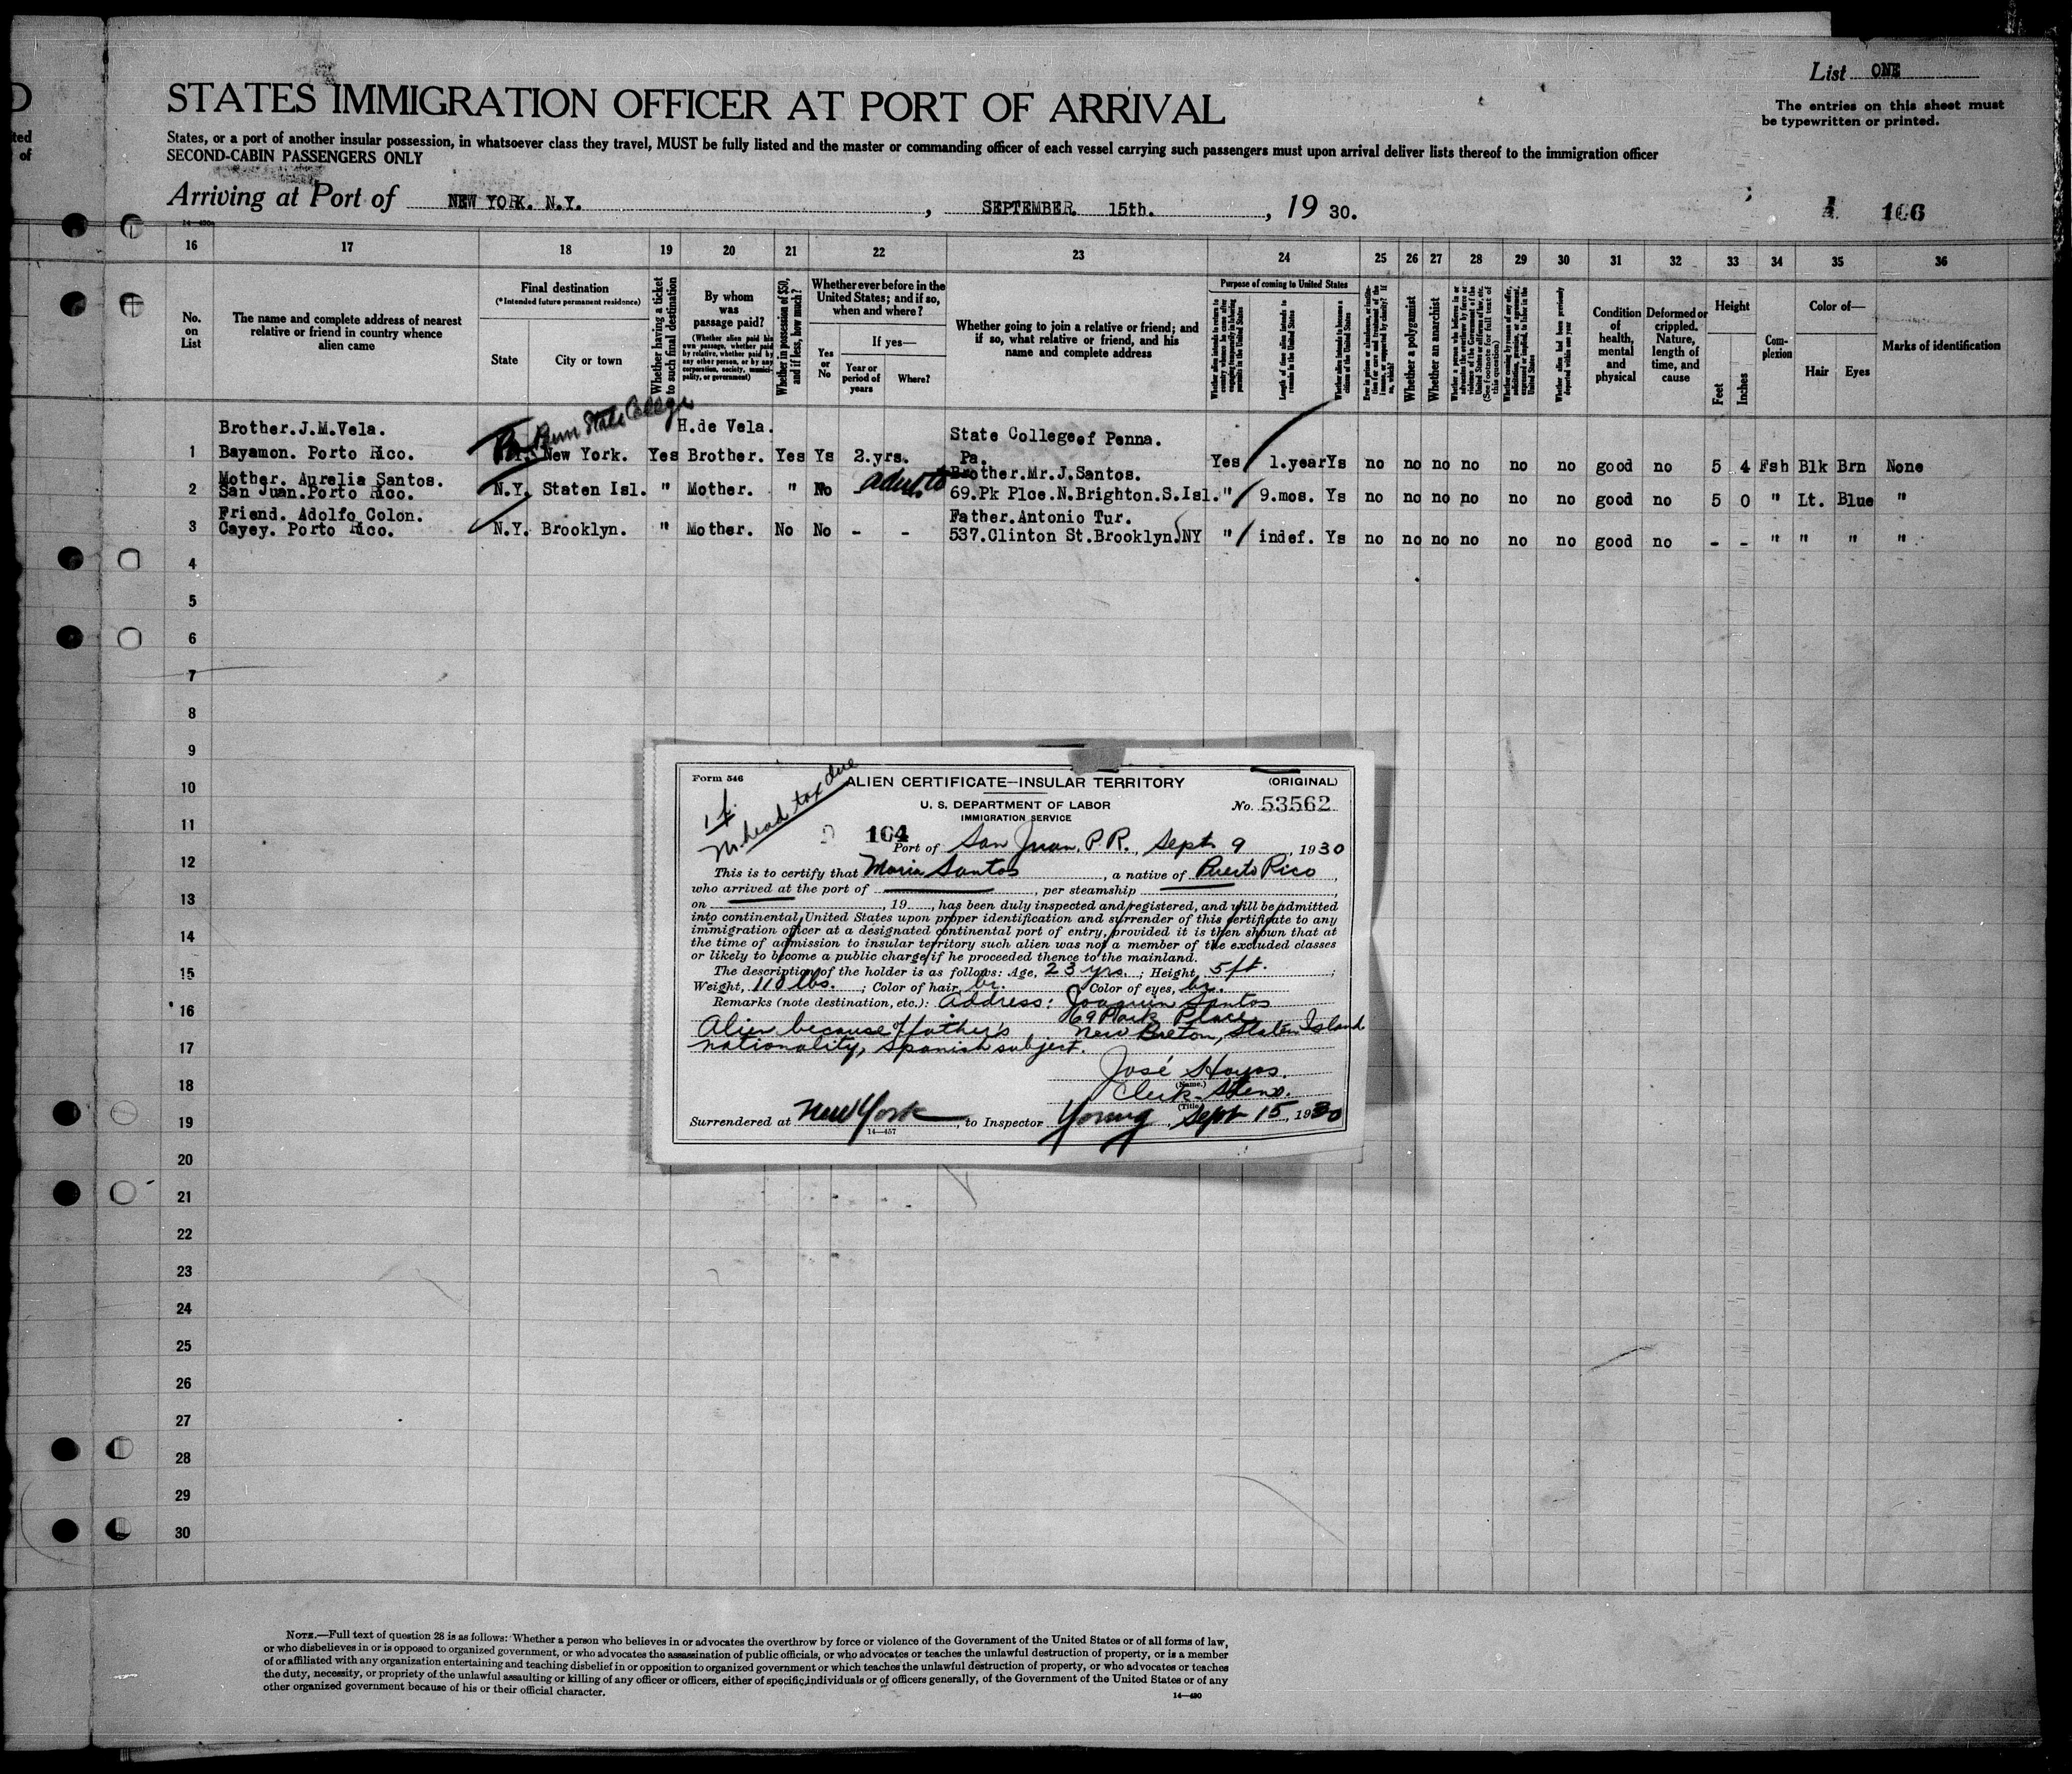 List ONE
D
STATES IMMIGRATION OFFICER AT PORT OF ARRIVAL
The entries on this sheet must
be typewritten or printed.
ted
of
States, or a port of another insular possession, in whatsoever class they travel, MUST be fully listed and the master or commanding officer of each vessel carrying such passengers must upon arrival deliver lists thereof to the immigration officer
SECOND-CABIN PASSENGERS ONLY
Arriving at Port of NEW YORK. N.Y. , SEPTEMBER 15th. , 19 30.
106
14—430
16 17 18 19 20 21 22 23 24 25 26 27 28 29 30 31 32 33 34 35 36
No.
on
List
The name and complete address of nearest
relative or friend in country whence
alien came
Final destination
(*Intended future permanent residence)
State
City or town
Whether having a ticket
to such final destination
By whom
was
passage paid?
(Whether alien paid his
own passage, whether paid
by relative, whether paid by
any other person, or by any
corporation, society, munici-
pality, or government)
Whether in possession of $50,
and if less, how much?
Whether ever before in the
United States; and if so,
when and where?
Yes
or
No
If yes—
Year or
period of
years
Where?
Whether going to join a relative or friend; and
if so, what relative or friend, and his
name and complete address
Purpose of coming to United States
Length of time alien intends to
remain in the United States
Whether alien intends to become a
citizen of the United States
Whether a polygamist
Whether an anarchist
Whether alien had been previously
deported within one year
Condition
of
health,
mental
and
physical
Deformed or
crippled.
Nature,
length of
time, and
cause
Height
Feet
Inches
Com-
plexion
Color of—
Hair
Eyes
Marks of identification
Penn State College
Brother.J.M.Vela. H.de Vela. State College of Penna.
1 Bayamon. Porto Rico. New York. Yes Brother. Yes Ys 2.yrs. Pa. Yes 1.year Ys no no no no no no good no 5 4 Fsh Blk Brn None
Mother. Aurelia Santos. Brother.Mr.J.Santos.
2 San Juan.Porto Rico. N.Y. Staten Isl. " Mother. " No 69.Pk Plce.N.Brighton.S.Isl. " 9.mos. Ys no no no no no no good no 5 0 " Lt. Blue "
Friend. Adolfo Colon. Father.Antonio Tur.
3 Cayey. Porto Rico. N.Y. Brooklyn. " Mother. No No - - 537.Clinton St.Brooklyn.NY " indef. Ys no no no no no no good no - - " " " "
4
5
6
7
8
9
10
11
12
13
14
15
16
17
18
19
20
21
22
23
24
25
26
27
28
29
30
Form 546
head tax due
ALIEN CERTIFICATE—INSULAR TERRITORY
(ORIGINAL)
U. S. DEPARTMENT OF LABOR
No. 53562
IMMIGRATION SERVICE
164
Port of San Juan, P.R., Sept 9, 1930
This is to certify that Maria Santos, a native of Puerto Rico,
who arrived at the port of , per steamship
on , 19 , has been duly inspected and registered, and will be admitted
into continental United States upon proper identification and surrender of this certificate to any
immigration officer at a designated continental port of entry, provided it is then shown that at
the time of admission to insular territory such alien was not a member of the excluded classes
or likely to become a public charge if he proceeded thence to the mainland.
The description of the holder is as follows: Age, 23 yrs. ; Height, 5 ft. ;
Weight, 110 lbs. ; Color of hair, br. Color of eyes, br.
Remarks (note destination, etc.): Address: Joaquin Santos
69 Park Place
Alien because of father's New Breton, Staten Island
nationality, Spanish subject.
José Hoyos.
(Name.)
Clerk-Steno.
(Title)
Surrendered at New York, to Inspector Young, Sept 15, 1930
14—457
NOTE.—Full text of question 28 is as follows: Whether a person who believes in or advocates the overthrow by force or violence of the Government of the United States or of all forms of law,
or who disbelieves in or is opposed to organized government, or who advocates the assassination of public officials, or who advocates or teaches the unlawful destruction of property, or is a member
of or affiliated with any organization entertaining and teaching disbelief in or opposition to organized government or which teaches the unlawful destruction of property, or who advocates or teaches
the duty, necessity, or propriety of the unlawful assaulting or killing of any officer or officers, either of specific individuals or of officers generally, of the Government of the United States or of any
other organized government because of his or their official character.
14—430